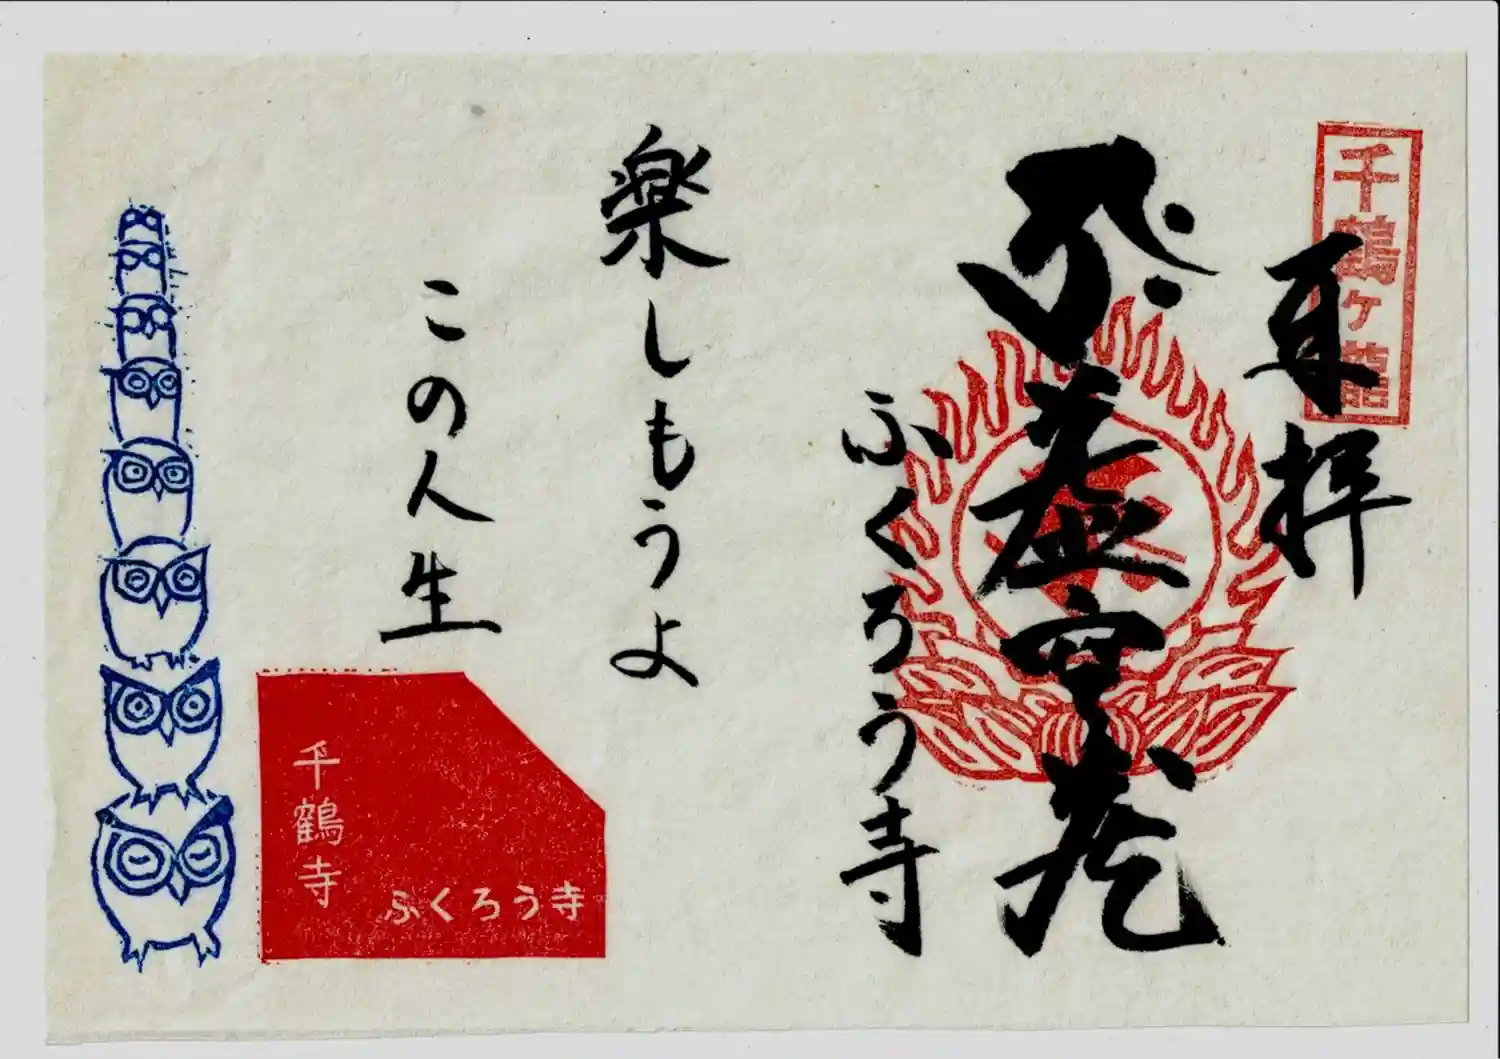 千鶴ヶ
奉拝
虚空蔵
ふくろう寺
楽しもうよ
この人生
千鶴寺
ふくろう寺